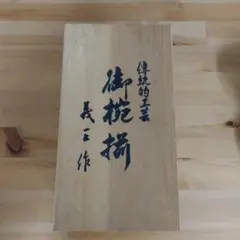 傳統的工芸
御椀揃
義三作